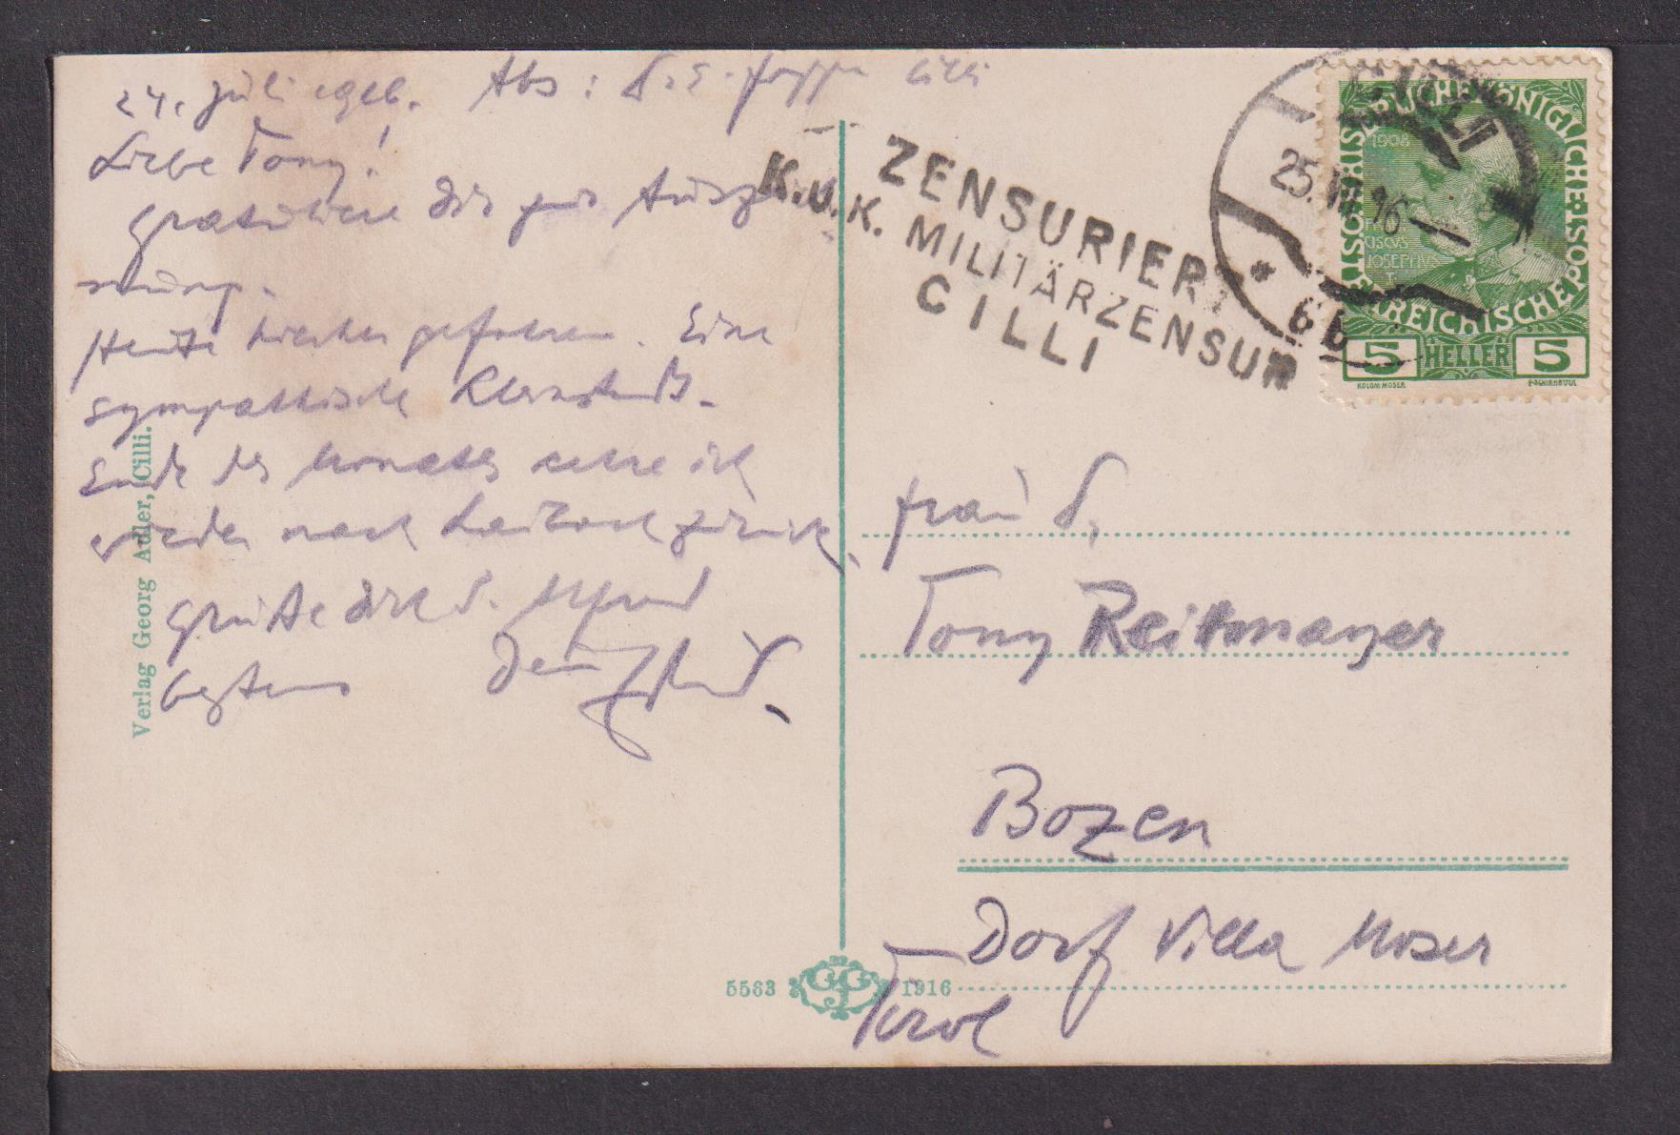 24. Juli 1916. Abs: Cilli
Liebe Tony!
gratuliere Dir zur Ausz
nung.
Heute hierher gefahren. Eine
sympathische Kleinstadt.
Ende des Monates kehre ich
wieder nach Laibach zurück.
Grüße Dich u.
bestens Dein
ZENSURIERT
K.u.K. MILITÄRZENSUR
CILLI
CILLI
25. VII 16
* 6b
KAISERLICHE KÖNIGLICHE ÖSTERREICHISCHE POST
1908
FRANCISCUS
JOSEPHUS
I
5 HELLER 5
KOLOM. MOSER
F. SCHIRNBÖCK
Frau
Tony Reitmayer
Bozen
Dorf Villa Moser
Tirol
Verlag Georg Adler, Cilli.
5563 1916